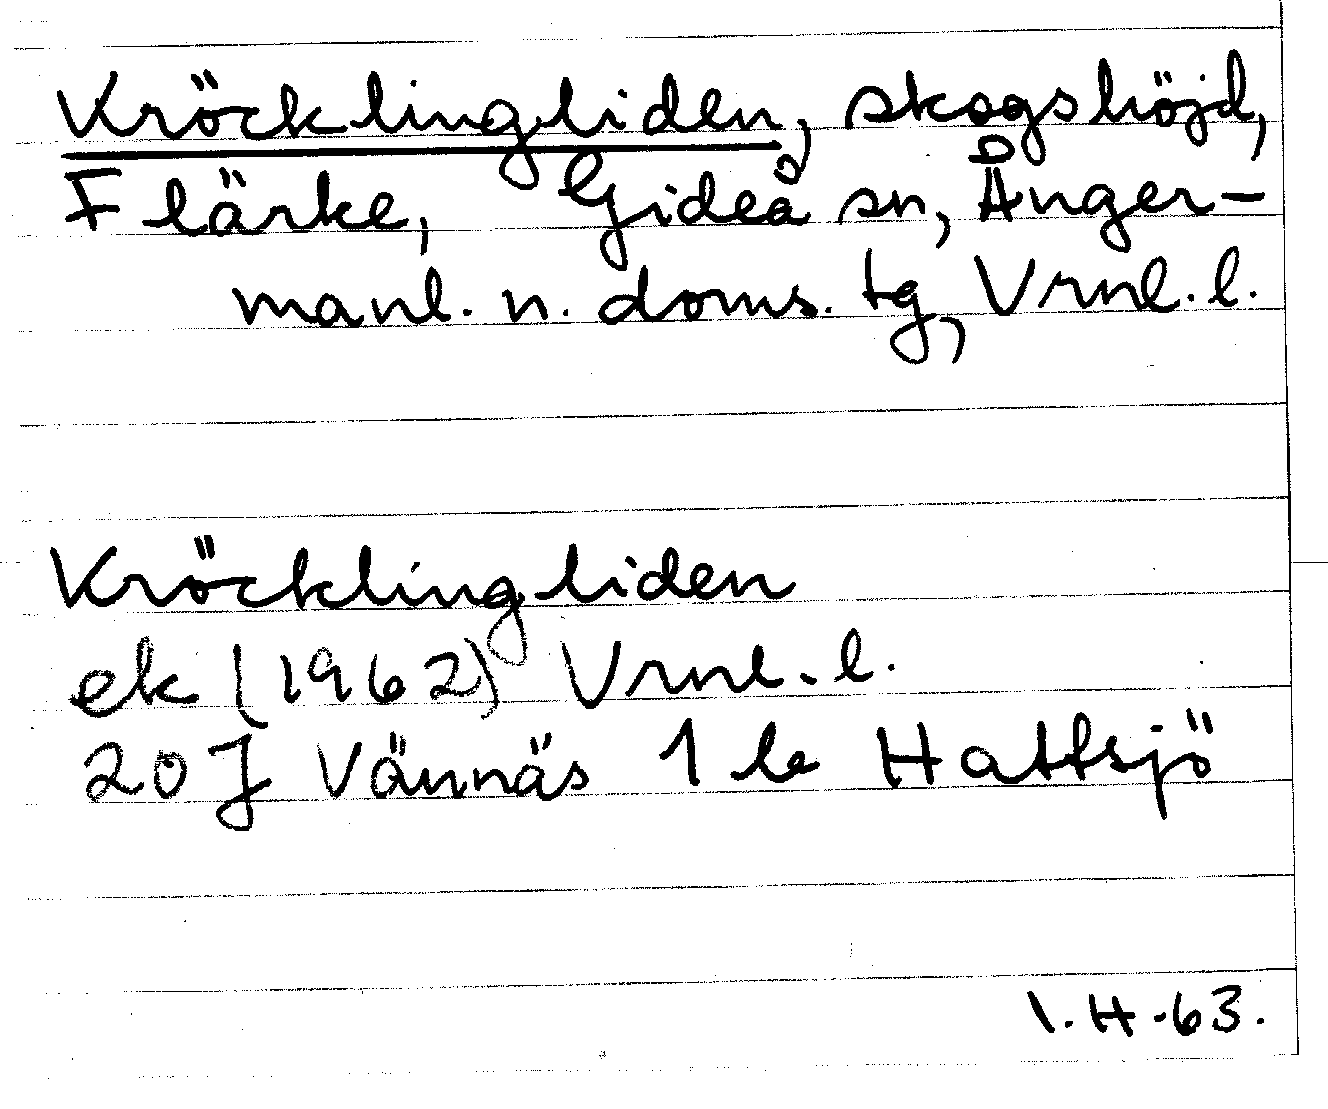 Kröcklingliden, skogshöjd,
Flärke, Gideå sn, Ånger-
manl. n. doms. tg, Vrnl. l.
Kröcklingliden
ek (1962) Vrnl. l.
20J Vännäs 1 le Hattsjö
I. H -63.